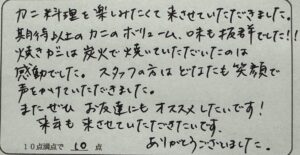 カニ料理を楽しみたくて来させていただきました。
期待以上のカニのボリューム、味も抜群でした!!
焼きガニは炭火で焼いていただいたのは
感動でした。スタッフの方はどなたも笑顔で
声をかけていただきました。
またぜひ お友達にもオススメしたいです!
来年も来させていただきたいです。
10点満点で 10 点
ありがとうございました。